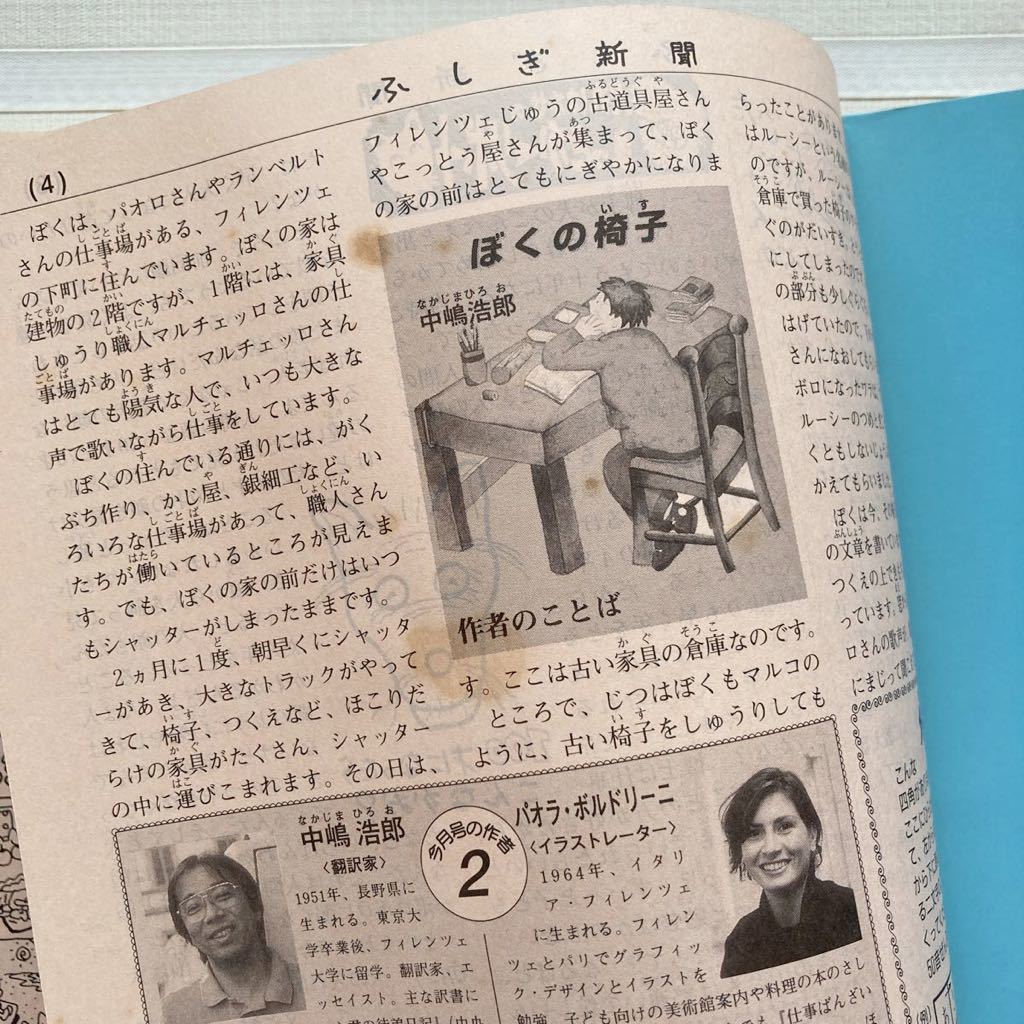 ふしぎ新聞
(4)
ぼくは、パオロさんやランベルト
さんの仕事場がある、フィレンツェ
の下町に住んでいます。ぼくの家は
建物の2階ですが、1階には、家具
しゅうり職人マルチェッロさんの仕
事場があります。マルチェッロさん
はとても陽気な人で、いつも大きな
声で歌いながら仕事をしています。
ぼくの住んでいる通りには、がく
ぶち作り、かじ屋、銀細工など、い
ろいろな仕事場があって、職人さん
たちが働いているところが見えま
す。でも、ぼくの家の前だけはいつ
もシャッターがしまったままです。
2ヵ月に1度、朝早くにシャッタ
ーがあき、大きなトラックがやって
きて、椅子、つくえなど、ほこりだ
らけの家具がたくさん、シャッター
の中に運びこまれます。その日は、
フィレンツェじゅうの古道具屋さん
やこっとう屋さんが集まって、ぼく
の家の前はとてもにぎやかになりま
ぼくの椅子
なかじまひろお
中嶋浩郎
作者のことば
す。ここは古い家具の倉庫なのです。
ところで、じつはぼくもマルコの
ように、古い椅子をしゅうりしても
らったことがあります
はルーシーという
のですが、ルーシー
倉庫で買った椅子の
ぐのがだいすき、と
にしてしまったのです
の部分も少しぐら
はげていたので、
さんになおしてもら
ボロになったワラは
ルーシーのつめと
くともしないじょう
かえてもらいました
ぼくは今、その
の文章を書いてい
つくえの上でき
っています。
ロさんの歌声が
にまじって聞こ
今月号の作者
2
なかじま ひろお
中嶋 浩郎
〈翻訳家〉
1951年、長野県に
生まれる。東京大
学卒業後、フィレンツェ
大学に留学。翻訳家、エ
ッセイスト。主な訳書に
パオラ・ボルドリーニ
〈イラストレーター〉
1964年、イタリ
ア・フィレンツェ
に生まれる。フィレン
ツェとパリでグラフィッ
ク・デザインとイラストを
勉強。子ども向けの美術館案内や料理の本のさし
こんな
四角が
ここにひ
て、左か
から下に
る一文字
くってく
50音せ
(例)